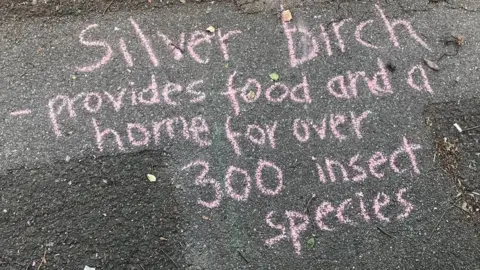 Silver Birch
- provides food and a
home for over
300 insect
species